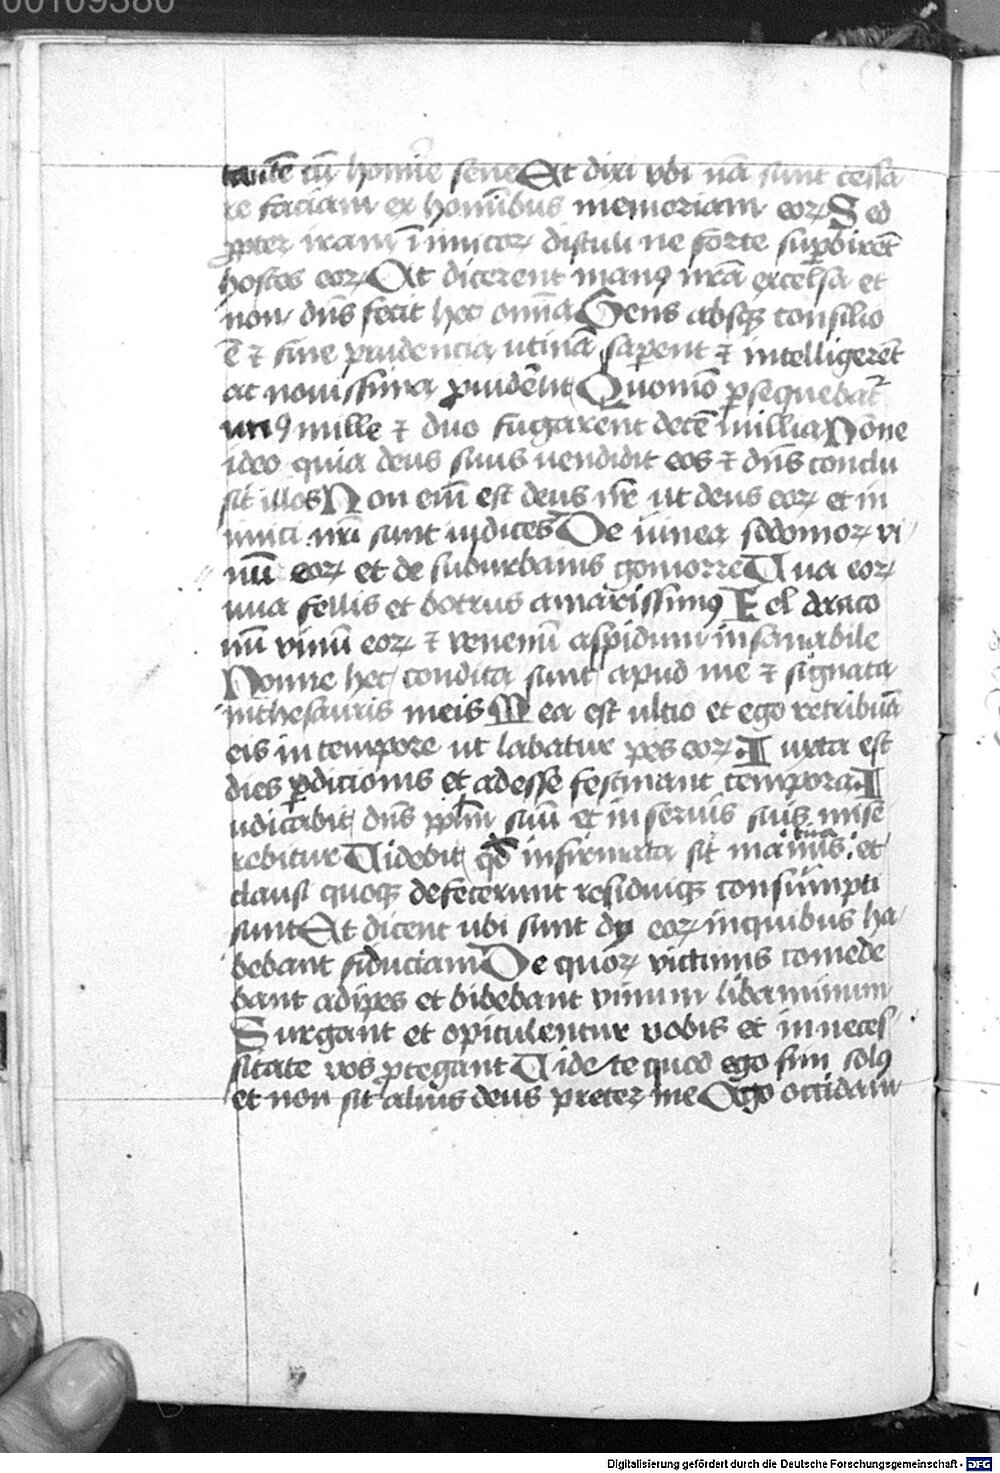 00109380
tantē cū homīe sene Et dixi ubi nā sunt cessa
re faciam ex homībus memoriam eoꝝ Sed
ꝓpter iram īimicoꝝ distuli ne forte suꝑbirēt
hostes eoꝝ Et dicerent manꝰ nr̄a excelsa et
non dn̄s fecit hec om̄ia Gens absqꝫ consilio
ē ⁊ sine prudencia utinā saperent ⁊ intelligerēt
ac novissima ꝓuidēnt Quomō ꝑsequebat᷑
unꝰ mille ⁊ duo fugarent decē millia Nōne
ideo quia deus suus uendidit eos ⁊ dn̄s conclu
sit illos Non em̄ est deus nr̄ ut deus eoꝝ et in
imici nr̄i sunt iudices De uinea sodomoꝝ vi
nū eoꝝ et de suburbanis gomorre Uua eoꝝ
uua fellis et botrus amarissimꝰ Fel draco
nū vinū eoꝝ ⁊ venenū aspidum insanabile
Nonne hec condita sunt apud me ⁊ signata
in thesauris meis Mea est ultio et ego retribuā
eis in tempore ut labatur pes eoꝝ Iuxta est
dies ꝑdicionis et adesse festinant tempora I
udicabit dn̄s pplm̄ suū et in seruis suis mise
rebitur Uidebit qd̄ infirmata sit manus et
clausi quoqꝫ defecerunt residuiqꝫ consūmpti
sunt Et dicent ubi sunt dij eoꝝ in quibus ha
bebant fiduciam De quoꝝ victimis comede
bant adipes et bibebant vinum libaminum
Surgant et opitulentur vobis et in neces
sitate vos ꝓtegant Uidete quod ego sim solꝰ
et non sit alius deus preter me Ego occidam
Digitalisierung gefördert durch die Deutsche Forschungsgemeinschaft - DFG